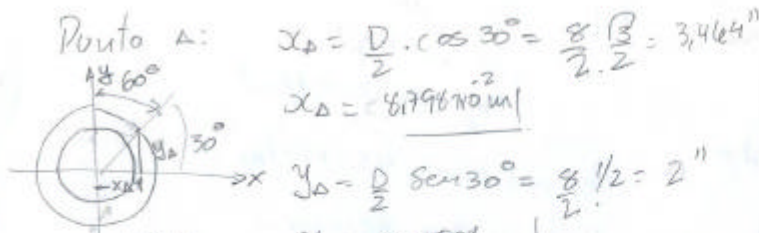 Punto A: x_A = D/2 . cos 30° = 8/2 . √3/2 = 3,464"
x_A = 8,798x10^-2 m
y 60°
y_A 30°
x_A x
y_A = D/2 sen 30° = 8/2 . 1/2 = 2"